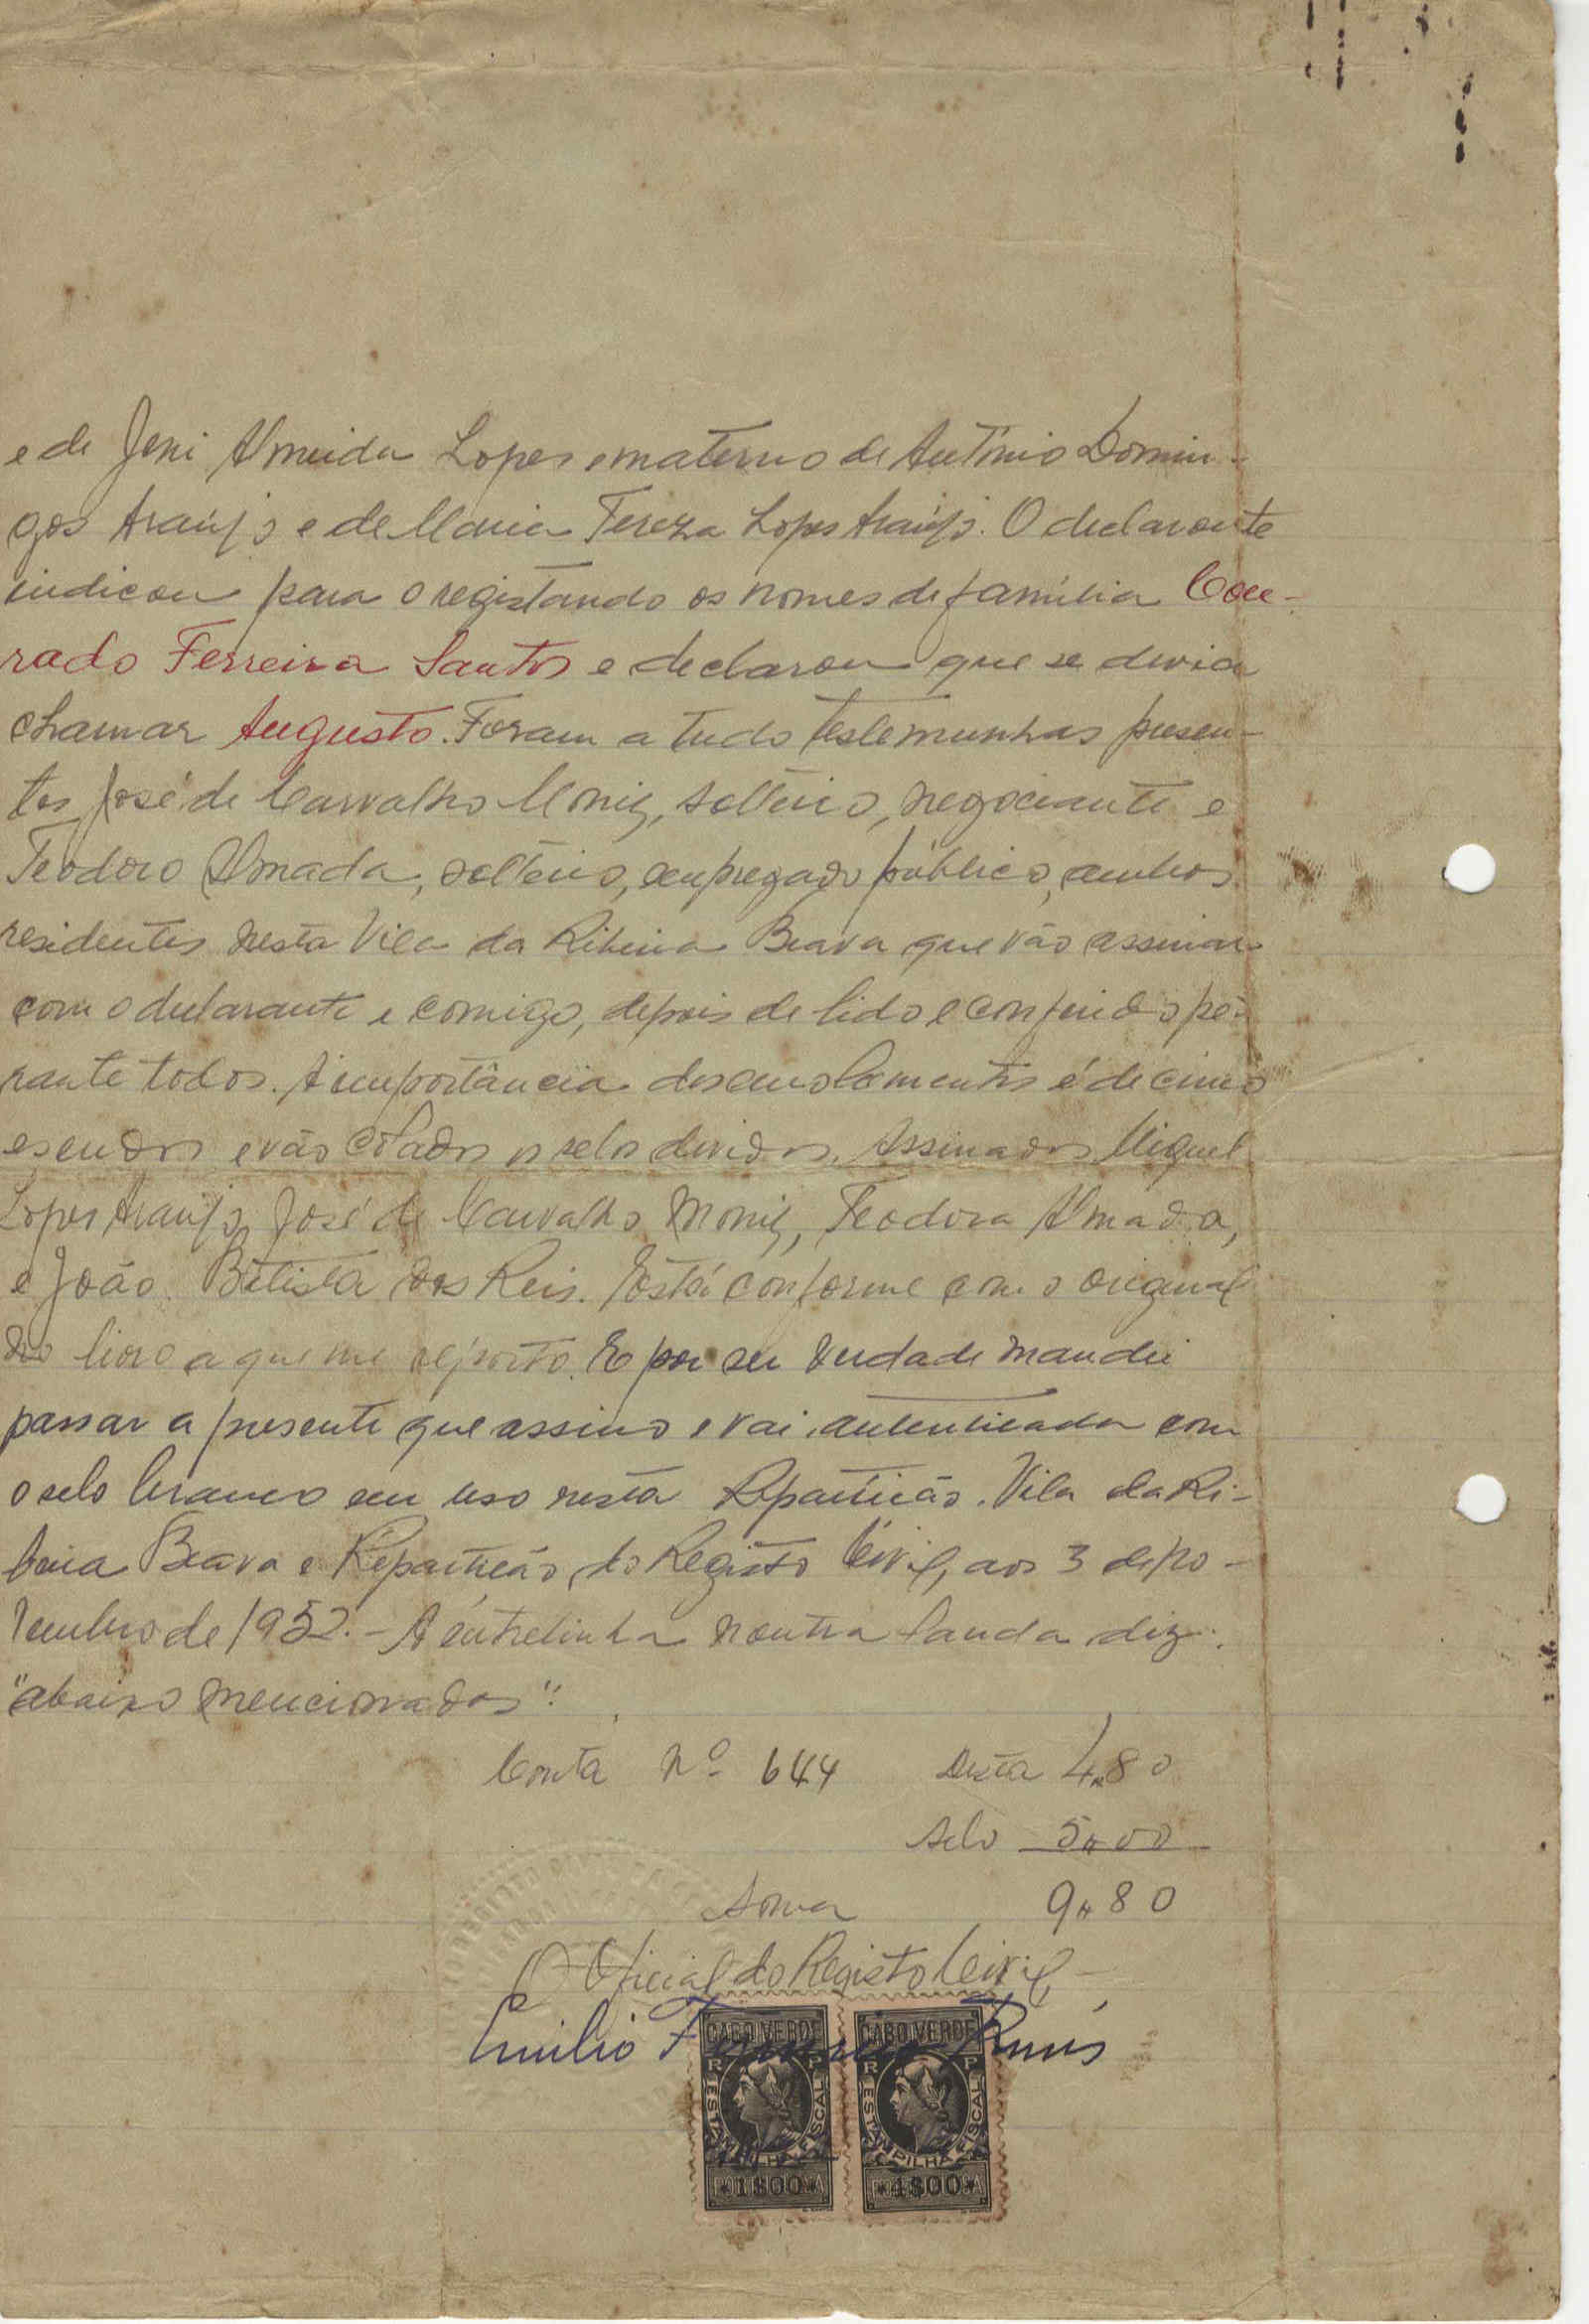 e de Jeni Almeida Lopes e materno de António Domin-
gos Araújo e de Maria Tereza Lopes Araújo. O declarante
indicou para o registando os nomes de família Con-
rado Ferreira Santos e declarou que se devia
chamar Augusto. Foram a tudo testemunhas presen-
tes José de Carvalho Moniz, solteiro, negociante e
Teodoro Almada, solteiro, empregado público, ambos
residentes nesta Vila da Ribeira Brava que vão assinar
com o declarante e comigo, depois de lido e conferido pe-
rante todos. A importância dos emolumentos é de cinco
escudos e vão colados os selos devidos. Assinados Miguel
Lopes Araújo, José de Carvalho Moniz, Teodoro Almada,
e João Batista dos Reis. Está conforme com o original
do livro a que me reporto. E por ser verdade mandei
passar a presente que assino e vai autenticada com
o selo branco em uso nesta Repartição. Vila da Ri-
beira Brava e Repartição do Registo Civil, aos 3 de No-
vembro de 1952. - A entrelinha noutra lauda diz:
"abaixo mencionados".
Conta Nº 644 Desta 4$80
Selo 5$00
Soma 9$80
O Oficial do Registo Civil,
Emilio
CABO VERDE CABO VERDE
R P R P
ESTAMPILHA FISCAL ESTAMPILHA FISCAL
*1$00* *4$00*